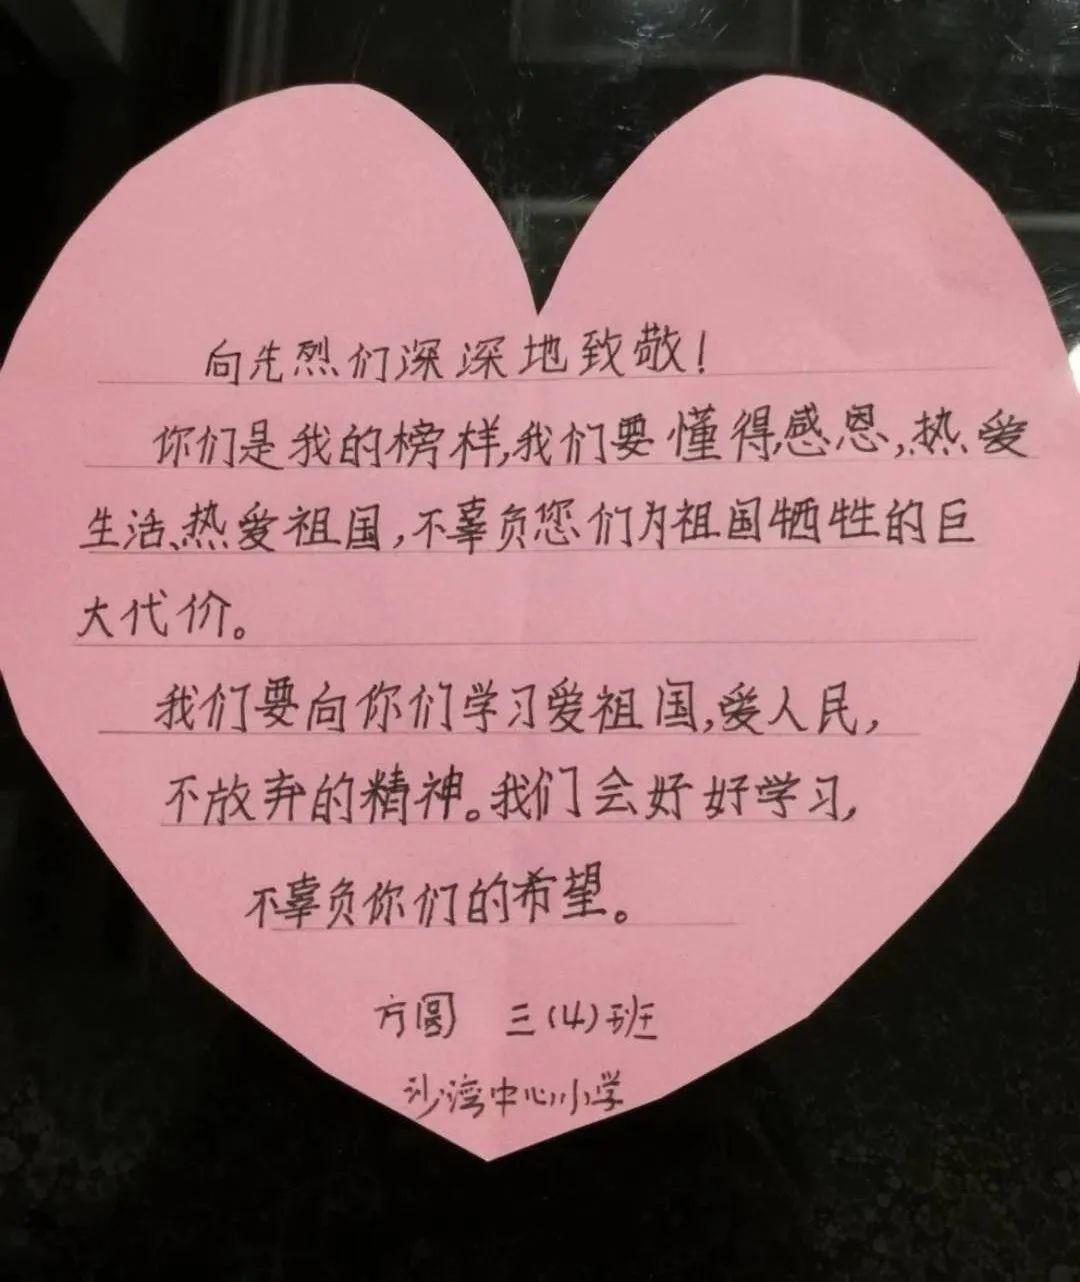 向先烈们深深地致敬!
你们是我的榜样,我们要懂得感恩,热爱
生活、热爱祖国,不辜负您们为祖国牺牲的巨
大代价。
我们要向你们学习爱祖国,爱人民,
不放弃的精神。我们会好好学习,
不辜负你们的希望。
方圆 三(4)班
沙湾中心小学